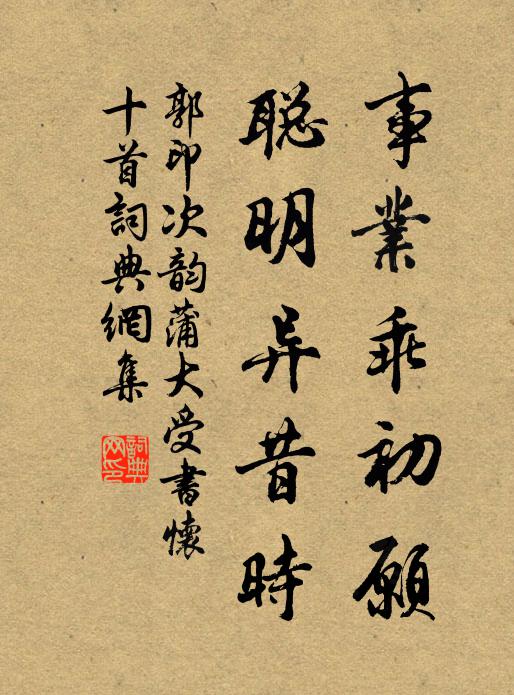 事業乖初願
聰明异昔時
郭印次韵蒲大受書懷
十首詞典網集
詞典网印